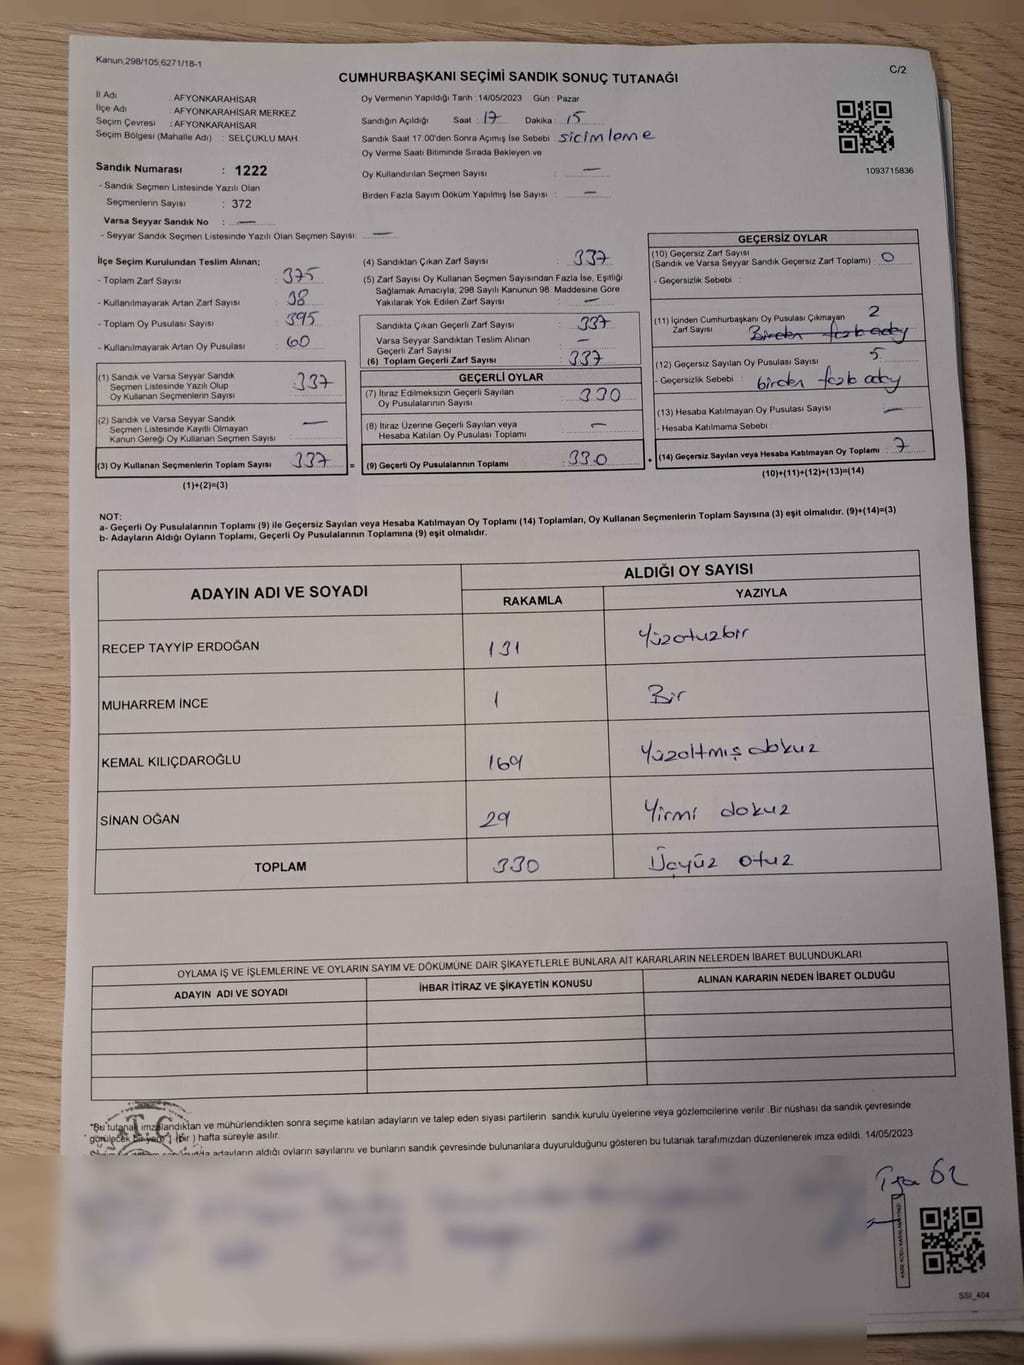 Kanun,298/105,6271/18-1
C/2
CUMHURBAŞKANI SEÇİMİ SANDIK SONUÇ TUTANAĞI
İl Adı : AFYONKARAHİSAR
İlçe Adı : AFYONKARAHİSAR MERKEZ
Seçim Çevresi : AFYONKARAHİSAR
Seçim Bölgesi (Mahalle Adı) : SELÇUKLU MAH.
Sandık Numarası : 1222
- Sandık Seçmen Listesinde Yazılı Olan
Seçmenlerin Sayısı : 372
Varsa Seyyar Sandık No : —
- Seyyar Sandık Seçmen Listesinde Yazılı Olan Seçmen Sayısı: —
Oy Vermenin Yapıldığı Tarih :14/05/2023 Gün : Pazar
Sandığın Açıldığı Saat : 17 Dakika : 15
Sandık Saat 17.00'den Sonra Açımış İse Sebebi :
Oy Verme Saati Bitiminde Sırada Bekleyen ve
Oy Kullandırılan Seçmen Sayısı : —
Birden Fazla Sayım Döküm Yapılmış İse Sayısı : —
1093715836
İlçe Seçim Kurulundan Teslim Alınan;
- Toplam Zarf Sayısı : 375
- Kullanılmayarak Artan Zarf Sayısı : 38
- Toplam Oy Pusulası Sayısı : 395
- Kullanılmayarak Artan Oy Pusulası : 60
(1) Sandık ve Varsa Seyyar Sandık
Seçmen Listesinde Yazılı Olup
Oy Kullanan Seçmenlerin Sayısı : 337
(2) Sandık ve Varsa Seyyar Sandık
Seçmen Listesinde Kayıtlı Olmayan
Kanun Gereği Oy Kullanan Seçmen Sayısı : —
(3) Oy Kullanan Seçmenlerin Toplam Sayısı : 337
(1)+(2)=(3)
=
(4) Sandıktan Çıkan Zarf Sayısı : 337
(5) Zarf Sayısı Oy Kullanan Seçmen Sayısından Fazla İse, Eşitliği
Sağlamak Amacıyla; 298 Sayılı Kanunun 98. Maddesine Göre
Yakılarak Yok Edilen Zarf Sayısı : —
Sandıkta Çıkan Geçerli Zarf Sayısı : 337
Varsa Seyyar Sandıktan Teslim Alınan
Geçerli Zarf Sayısı : —
(6) Toplam Geçerli Zarf Sayısı : 337
GEÇERLİ OYLAR
(7) İtiraz Edilmeksizin Geçerli Sayılan
Oy Pusulalarının Sayısı : 330
(8) İtiraz Üzerine Geçerli Sayılan veya
Hesaba Katılan Oy Pusulası Toplamı : —
(9) Geçerli Oy Pusulalarının Toplamı : 330
+
GEÇERSİZ OYLAR
(10) Geçersiz Zarf Sayısı
(Sandık ve Varsa Seyyar Sandık Geçersiz Zarf Toplamı) : 0
- Geçersizlik Sebebi :
(11) İçinden Cumhurbaşkanı Oy Pusulası Çıkmayan 2
Zarf Sayısı : Birden fazla aday
(12) Geçersiz Sayılan Oy Pusulası Sayısı : 5
- Geçersizlik Sebebi : birden fazla aday
(13) Hesaba Katılmayan Oy Pusulası Sayısı : —
- Hesaba Katılmama Sebebi :
(14) Geçersiz Sayılan veya Hesaba Katılmayan Oy Toplamı : 7
(10)+(11)+(12)+(13)=(14)
NOT:
a- Geçerli Oy Pusulalarının Toplamı (9) ile Geçersiz Sayılan veya Hesaba Katılmayan Oy Toplamı (14) Toplamları, Oy Kullanan Seçmenlerin Toplam Sayısına (3) eşit olmalıdır. (9)+(14)=(3)
b- Adayların Aldığı Oyların Toplamı, Geçerli Oy Pusulalarının Toplamına (9) eşit olmalıdır.
ADAYIN ADI VE SOYADI
ALDIĞI OY SAYISI
RAKAMLA YAZIYLA
RECEP TAYYİP ERDOĞAN 131 Yüzotuzbir
MUHARREM İNCE 1 Bir
KEMAL KILIÇDAROĞLU 169 Yüzaltmış dokuz
SİNAN OĞAN 29 Yirmi dokuz
TOPLAM 330 Üçyüz otuz
OYLAMA İŞ VE İŞLEMLERİNE VE OYLARIN SAYIM VE DÖKÜMÜNE DAİR ŞİKAYETLERLE BUNLARA AİT KARARLARIN NELERDEN İBARET BULUNDUKLARI
ADAYIN ADI VE SOYADI İHBAR İTİRAZ VE ŞİKAYETİN KONUSU ALINAN KARARIN NEDEN İBARET OLDUĞU
T.C.
"Bu tutanak imzalandıktan ve mühürlendikten sonra seçime katılan adayların ve talep eden siyasi partilerin sandık kurulu üyelerine veya gözlemcilerine verilir .Bir nüshası da sandık çevresinde
görülecek bir yere 1 (bir ) hafta süreyle asılır.
adayların aldığı oyların sayılarını ve bunların sandık çevresinde bulunanlara duyurulduğunu gösteren bu tutanak tarafımızdan düzenlenerek imza edildi. 14/05/2023
SSI_404